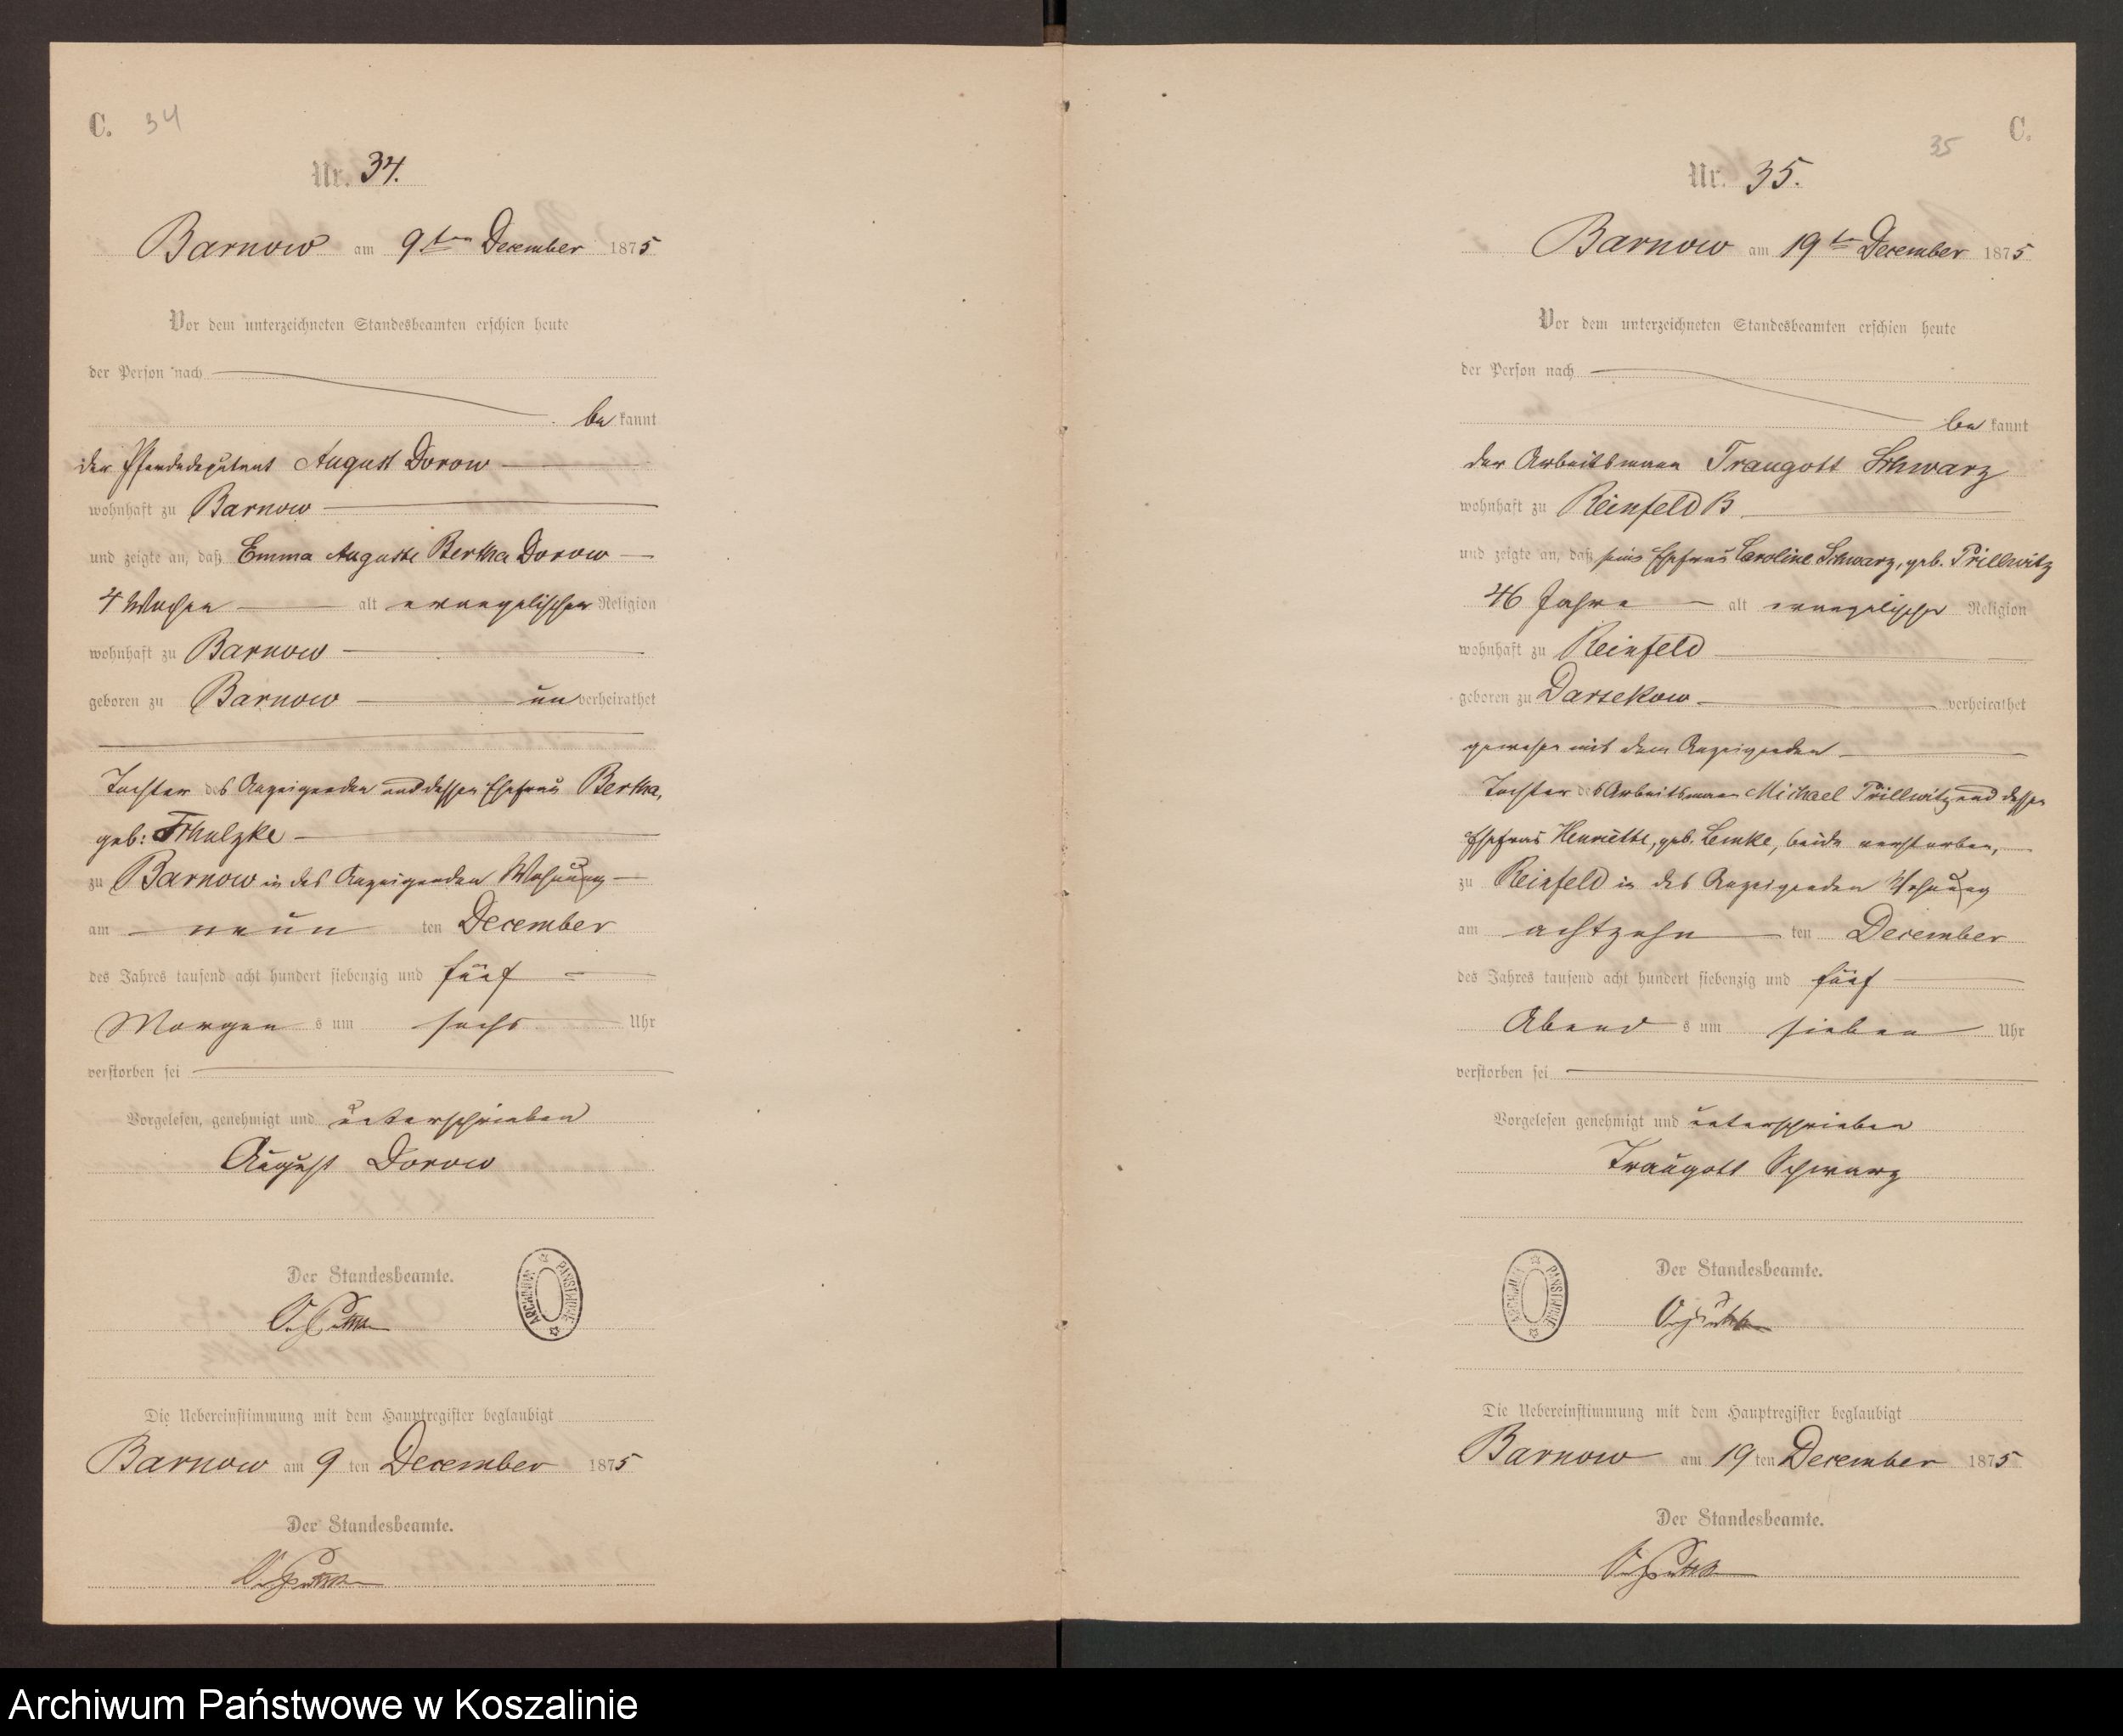 C. 34
Nr. 34.
Barnow am 9ten December 1875
Vor dem unterzeichneten Standesbeamten erschien heute
der Person nach
bekannt
der Pferdedeputant August Dorow
wohnhaft zu Barnow
und zeigte an, daß Emma Auguste Bertha Dorow
4 Wochen alt evangelischer Religion
wohnhaft zu Barnow
geboren zu Barnow unverheirathet
Tochter des Anzeigenden und dessen Ehefrau Bertha,
geb:
zu Barnow in des Anzeigenden Wohnung
am neun ten December
des Jahres tausend acht hundert siebenzig und fünf
Morgens um sechs Uhr
verstorben sei
Vorgelesen, genehmigt und unterschrieben
August Dorow
Der Standesbeamte.
ARCHIWUM PAŃSTWOWE
Die Uebereinstimmung mit dem Hauptregister beglaubigt
Barnow am 9 ten December 1875
Der Standesbeamte.
35 C.
Nr. 35.
Barnow am 19ten December 1875
Vor dem unterzeichneten Standesbeamten erschien heute
der Person nach
bekannt
der Arbeitsmann Traugott Schwarz
wohnhaft zu Reinfeld B
und zeigte an, daß seine Ehefrau Caroline Schwarz, geb. Prillwitz
46 Jahre alt evangelischer Religion
wohnhaft zu Reinfeld
geboren zu Darsekow verheirathet
gewesen mit dem Anzeigenden
Tochter des Arbeitsmann Michael Prillwitz und dessen
Ehefrau Henriette, geb. Lemke, beide verstorben,
zu Reinfeld in des Anzeigenden Wohnung
am achtzehn ten December
des Jahres tausend acht hundert siebenzig und fünf
Abends um sieben Uhr
verstorben sei
Vorgelesen genehmigt und unterschrieben
Traugott Schwarz
Der Standesbeamte.
ARCHIWUM PAŃSTWOWE
Die Uebereinstimmung mit dem Hauptregister beglaubigt
Barnow am 19 ten December 1875
Der Standesbeamte.
Archiwum Państwowe w Koszalinie